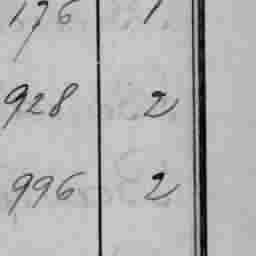 176 1
928 2
996 2